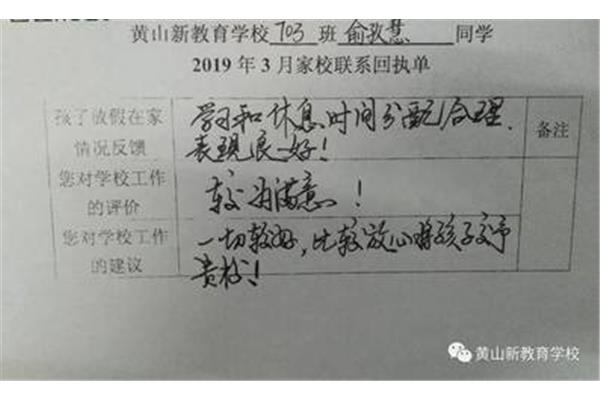 黄山新教育学校 703 班 俞孜慧 同学
2019 年 3 月家校联系回执单
孩子放假在家
情况反馈
学习和休息时间分配合理,
表现很好!
备注
您对学校工作
的评价
较为满意!
您对学校工作
的建议
一切较好,比较放心将孩子交予
贵校!
黄山新教育学校